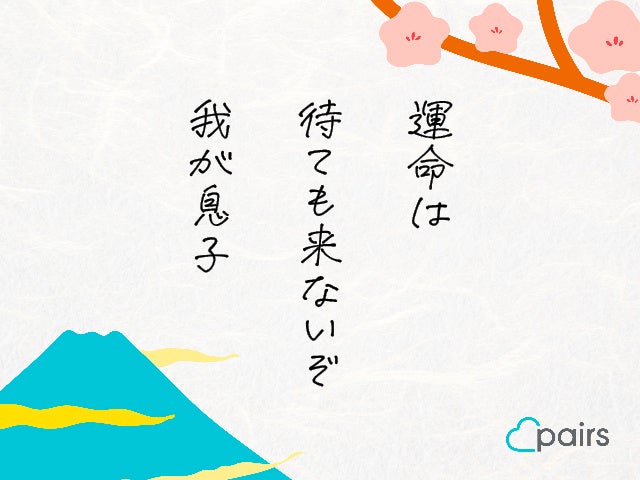 運命は
待ても来ないぞ
我が息子
pairs